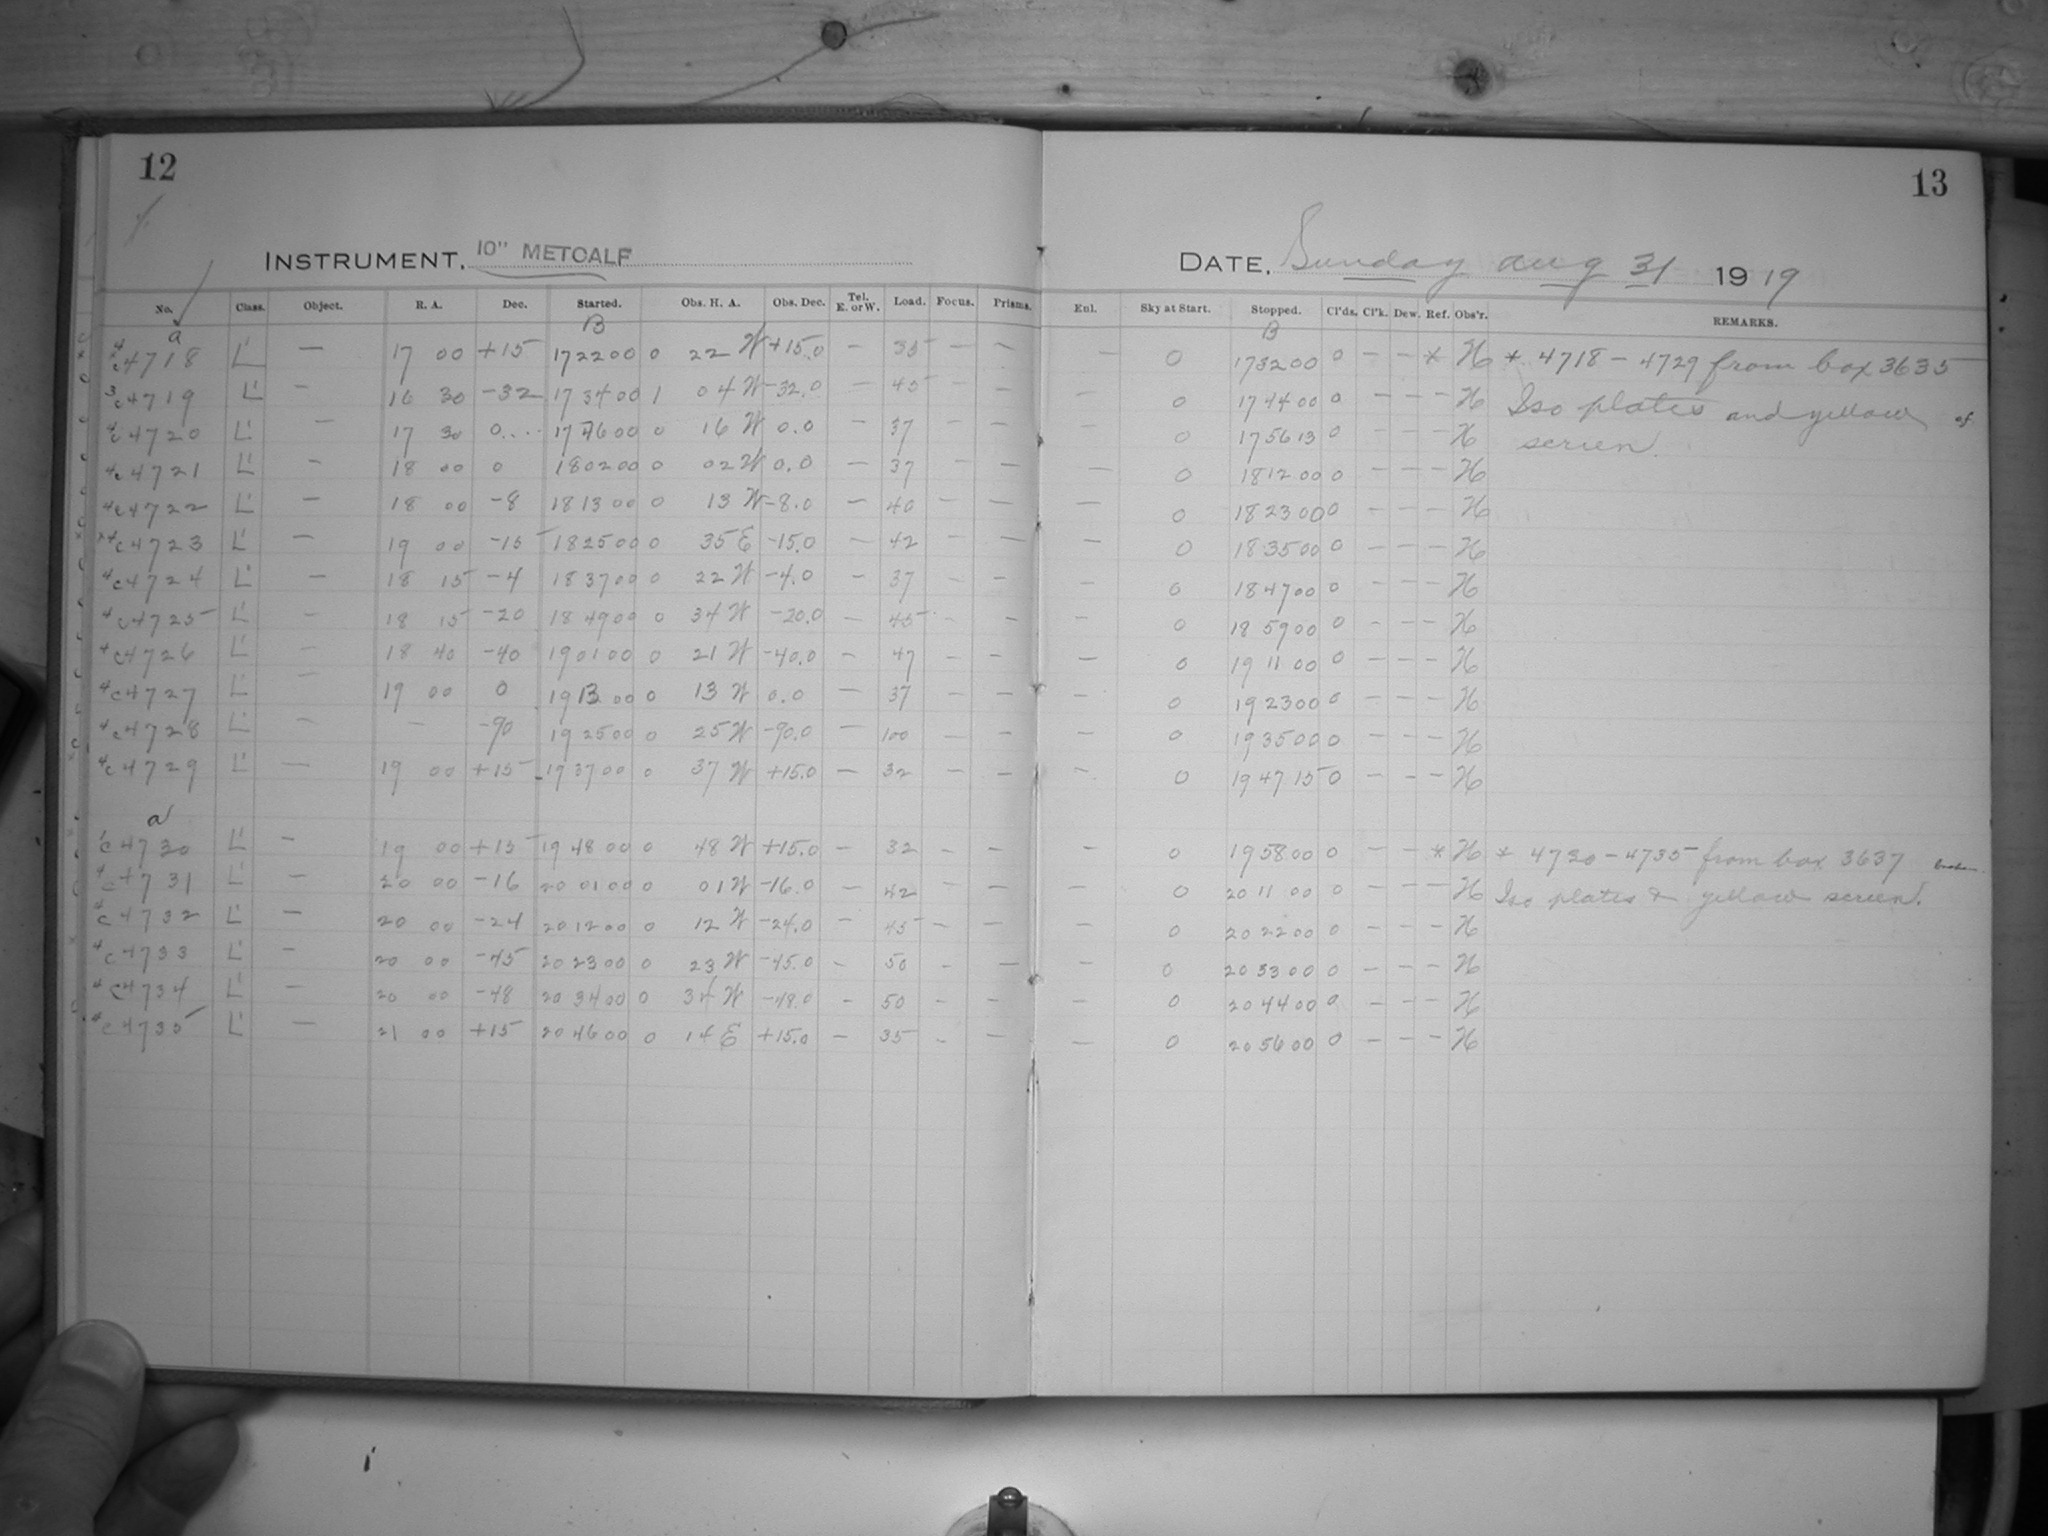 12
13
INSTRUMENT. 10" METCALF
DATE. Sunday Aug 31 1919
No. Class. Object. R. A. Dec. Started. Obs. H. A. Obs. Dec. Tel. E. or W. Load. Focus. Prisms. Enl. Sky at Start. Stopped. Cl'ds. Cl'k. Dew. Ref. Obs'r. REMARKS.
a B B
c4718 L' — 17 00 +15 17 22 00 0 22 W +15.0 — 35 — — — 0 17 32 00 0 — — * H * 4718 - 4729 from box 3635
c4719 L' — 16 30 -32 17 34 00 1 04 W -32.0 — 45 — — — 0 17 44 00 0 — — — H Iso plates and yellow
c4720 L' — 17 30 0.... 17 46 00 0 16 W 0.0 — 37 — — — 0 17 56 13 0 — — — H screen.
c4721 L' — 18 00 0 18 02 00 0 02 W 0.0 — 37 — — — 0 18 12 00 0 — — — H
c4722 L' — 18 00 -8 18 13 00 0 13 W -8.0 — 40 — — — 0 18 23 00 0 — — — H
c4723 L' — 19 00 -15 18 25 00 0 35 E -15.0 — 42 — — — 0 18 35 00 0 — — — H
c4724 L' — 18 15 -4 18 37 00 0 22 W -4.0 — 37 — — — 0 18 47 00 0 — — — H
c4725 L' — 18 15 -20 18 49 00 0 34 W -20.0 — 45 — — — 0 18 59 00 0 — — — H
c4726 L' — 18 40 -40 19 01 00 0 21 W -40.0 — 47 — — — 0 19 11 00 0 — — — H
c4727 L' — 19 00 0 19 13 00 0 13 W 0.0 — 37 — — — 0 19 23 00 0 — — — H
c4728 L' — — -90 19 25 00 0 25 W -90.0 — 100 — — — 0 19 35 00 0 — — — H
c4729 L' — 19 00 +15 19 37 00 0 37 W +15.0 — 32 — — — 0 19 47 15 0 — — — H
a
c4730 L' — 19 00 +15 19 48 00 0 48 W +15.0 — 32 — — — 0 19 58 00 0 — — * H * 4730 - 4735 from box 3637
c4731 L' — 20 00 -16 20 01 00 0 01 W -16.0 — 42 — — — 0 20 11 00 0 — — — H Iso plates & yellow screen.
c4732 L' — 20 00 -24 20 12 00 0 12 W -24.0 — 45 — — — 0 20 22 00 0 — — — H
c4733 L' — 20 00 -45 20 23 00 0 23 W -45.0 — 50 — — — 0 20 33 00 0 — — — H
c4734 L' — 20 00 -48 20 34 00 0 34 W -48.0 — 50 — — — 0 20 44 00 0 — — — H
c4735 L' — 21 00 +15 20 46 00 0 14 E +15.0 — 35 — — — 0 20 56 00 0 — — — H